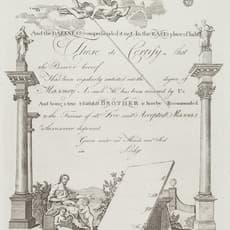 And the DARKNESS comprehended it not. In the EAST a place of Light
These do Certify that
the Bearer hereof
Has been regularly initiated into the degree of
Masonry As such He has been received by Us
And being a true & faithfull BROTHER is hereby Recommended
to the Favour of all Free and Accepted Masons
wheresoever dispersed
Given under our Hands and Seal
in Lodge